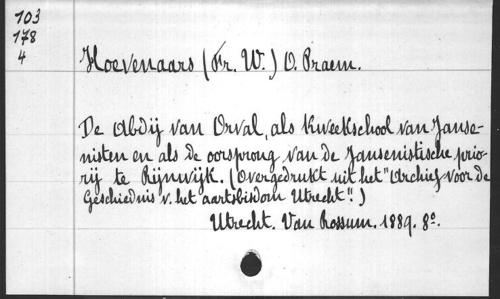 103
178
4
Hoevenaars (Fr. W.) O. Praem.
De Abdij van Orval, als kweekschool van Janse-
nisten en als de oorsprong van de Jansenistische prio-
rij te Rijnwijk. (Overgedrukt uit het "Archief voor de
Geschiednis v. het aartsbisdom Utrecht".)
Utrecht. Van Rossum. 1889. 8º.